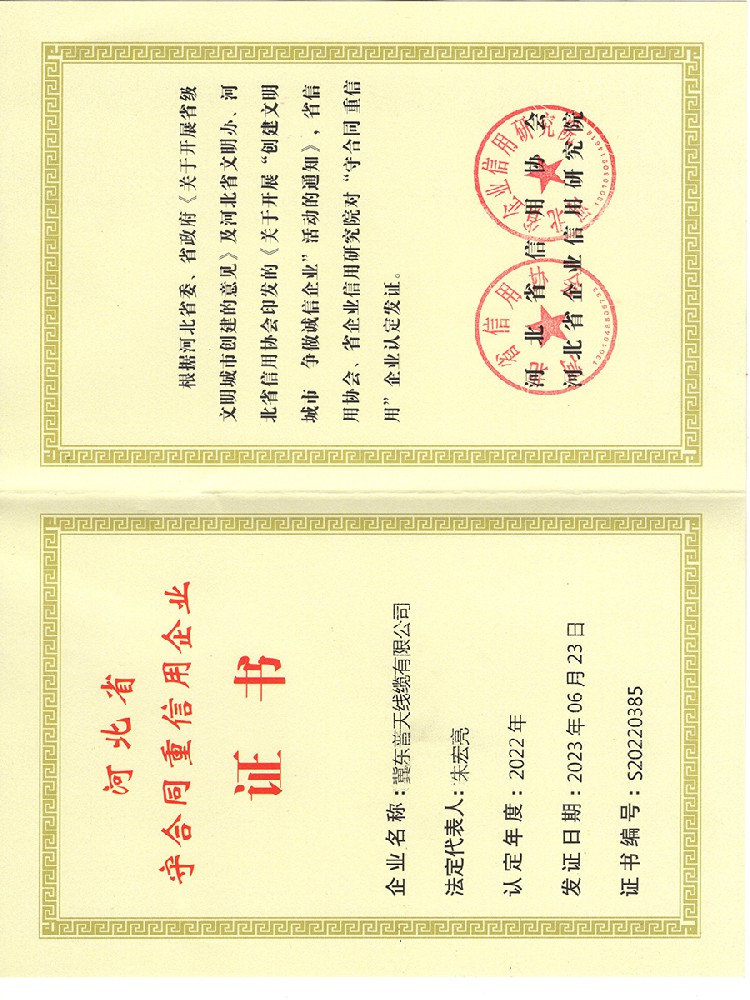 河北省
守合同重信用企业
证书
企业名称：冀东普天线缆有限公司
法定代表人：朱宏亮
认定年度：2022年
发证日期：2023年06月23日
证书编号：S20220385
根据河北省委、省政府《关于开展省级
文明城市创建的意见》及河北省文明办、河
北省信用协会印发的《关于开展“创建文明
城市 争做诚信企业”活动的通知》，省信
用协会、省企业信用研究院对“守合同 重信
用”企业认定发证。
河北省信用协会
河北省企业信用研究院